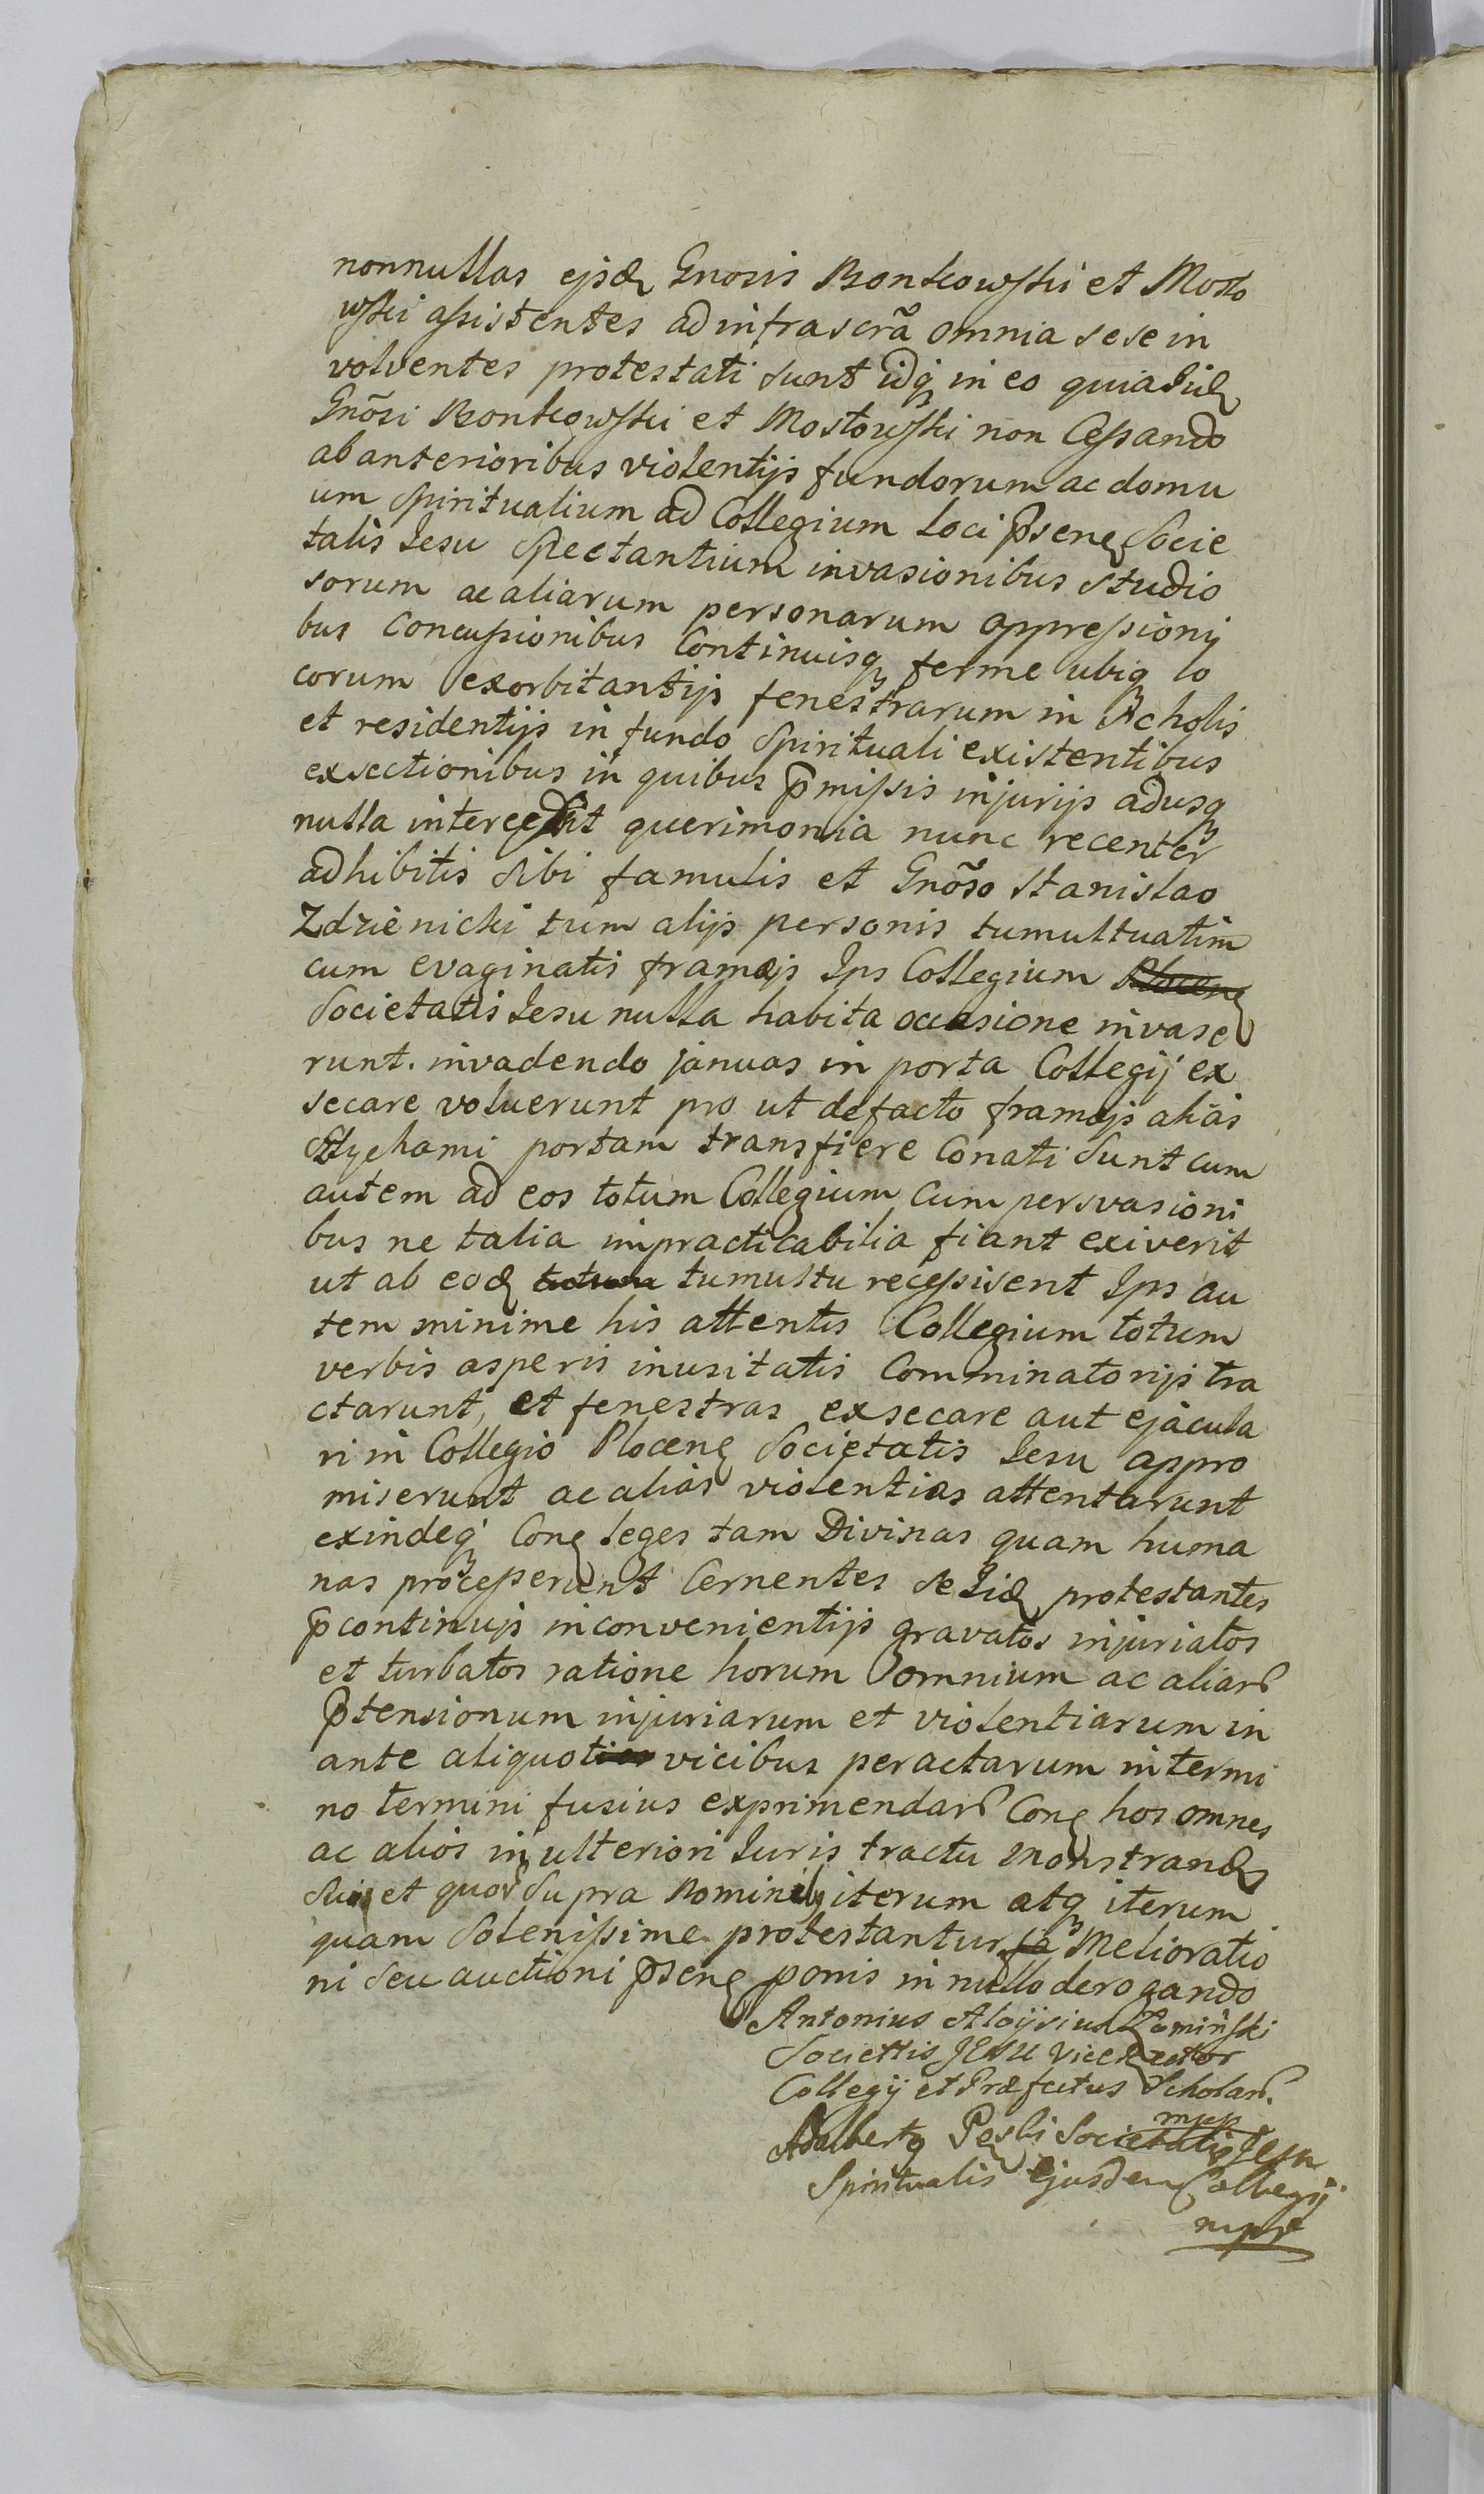 nonnullas ejsd. Gnosis Bonkowski et Mosto
wski assistentes ad infrascrã omnia sese in
volventes protestati sunt idq. in eo quia Iid.
Gnõsi Bonkowski et Mostowski non Cessando
ab anterioribus violentijs fundorum ac domu
um spiritualium ad Collegium loci p̃sen. Socie
tatis Iesu Spectantium invasionibus studio
sorum ac aliarum personarum oppressioni
bus Concussionibus Continuisq. ferme ubiq. lo
corum exorbitantijs fenestrarum in Scholis
et residentijs in fundo Spirituali existentibus
exsectionibus in quibus p̃missis injurijs adusq.
nulla intercessit querimonia nunc recenter
adhibitis sibi famulis et Gnõso Stanislao
Zdzienicki tum alijs personis tumultuatim
cum evaginatis frameis Ips Collegium Plocen.
Societatis Iesu nulla habita occasione invase
runt. invadendo januas in porta Collegij ex
secare voluerunt pro ut de facto frameis alias
Sztychami portam transfiere Conati sunt cum
autem ad eos totum Collegium Cum persvasioni
bus ne talia impracticabilia fiant exiverit
ut ab eod. tumultu recessisent Ips au
tem minime his attentis Collegium totum
verbis asperis inusitatis Comminatorijs tra
ctarunt, et fenestras exsecare aut ejacula
ri in Collegio Plocen. Societatis Iesu appro
miserunt ac alias violentias attentarunt
exindeq. Con. leges tam Divinas quam huma
nas processerunt Cernentes se Iid. protestantes
p̃ continujs inconvenientijs gravatos injuriatos
et turbatos ratione horum omnium ac aliar.
p̃tensionum injuriarum et violentiarum in
ante aliquot vicibus peractarum in termi
no termini fusius exprimendar. Con. hos omnes
ac alios in ulteriori Iuris tractu monstrand.
et quor. supra iterum atq. iterum
quam Solenissime protestantur Melioratio
ni seu auctioni p̃sen. ponis in nullo derogando
Antonius Aloijsius Zomiński
Societtis JESU ViceRector
Collegij et Præfectus Scholar.
mpp
Adalbertq Societatis Jesu
Spiritualis Ejusdem Collegij
mpp